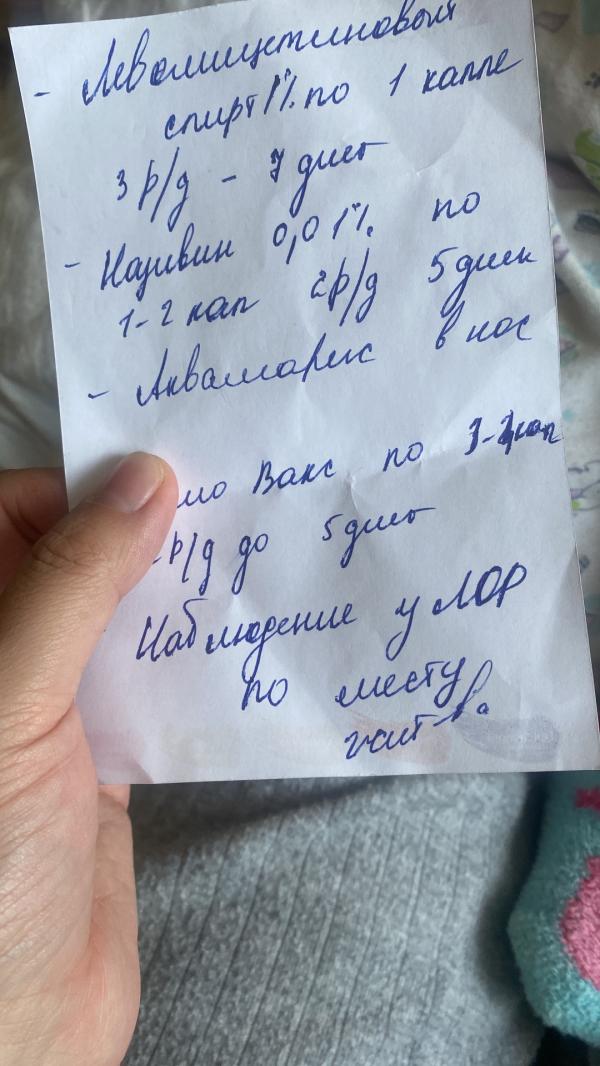 - Левомицетиновый
спирт 1% по 1 капле
3 р/д - 7 дней
- Називин 0,01% по
1-2 кап 2р/д 5 дней
- Аквамарис в нос
мо Вакс по кап
р/д до 5 дней
Наблюдение у ЛОР
по месту
жит-ва.